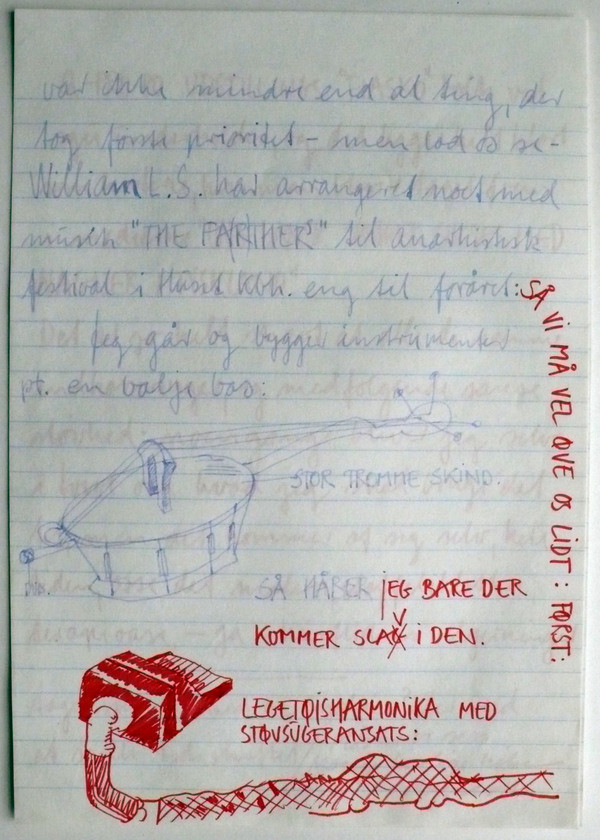 var ikke mindre end al ting, der
tog første prioritet - men lad os se -
William L.S. har arrangeret noct med
musik "THE FA(R)THERS" til anarkistisk
festival i Huset Kbh. eng til foråret:
SÅ VI MÅ VEL ØVE OS LIDT: FØRST:
Jeg går og bygger instrumenter
pt. en balje bas:
STOR TROMME SKIND.
SÅ HÅBER jEG BARE DER
KOMMER SLAV I DEN.
LEGETØJSHARMONIKA MED
STØVSUGERANSATS: